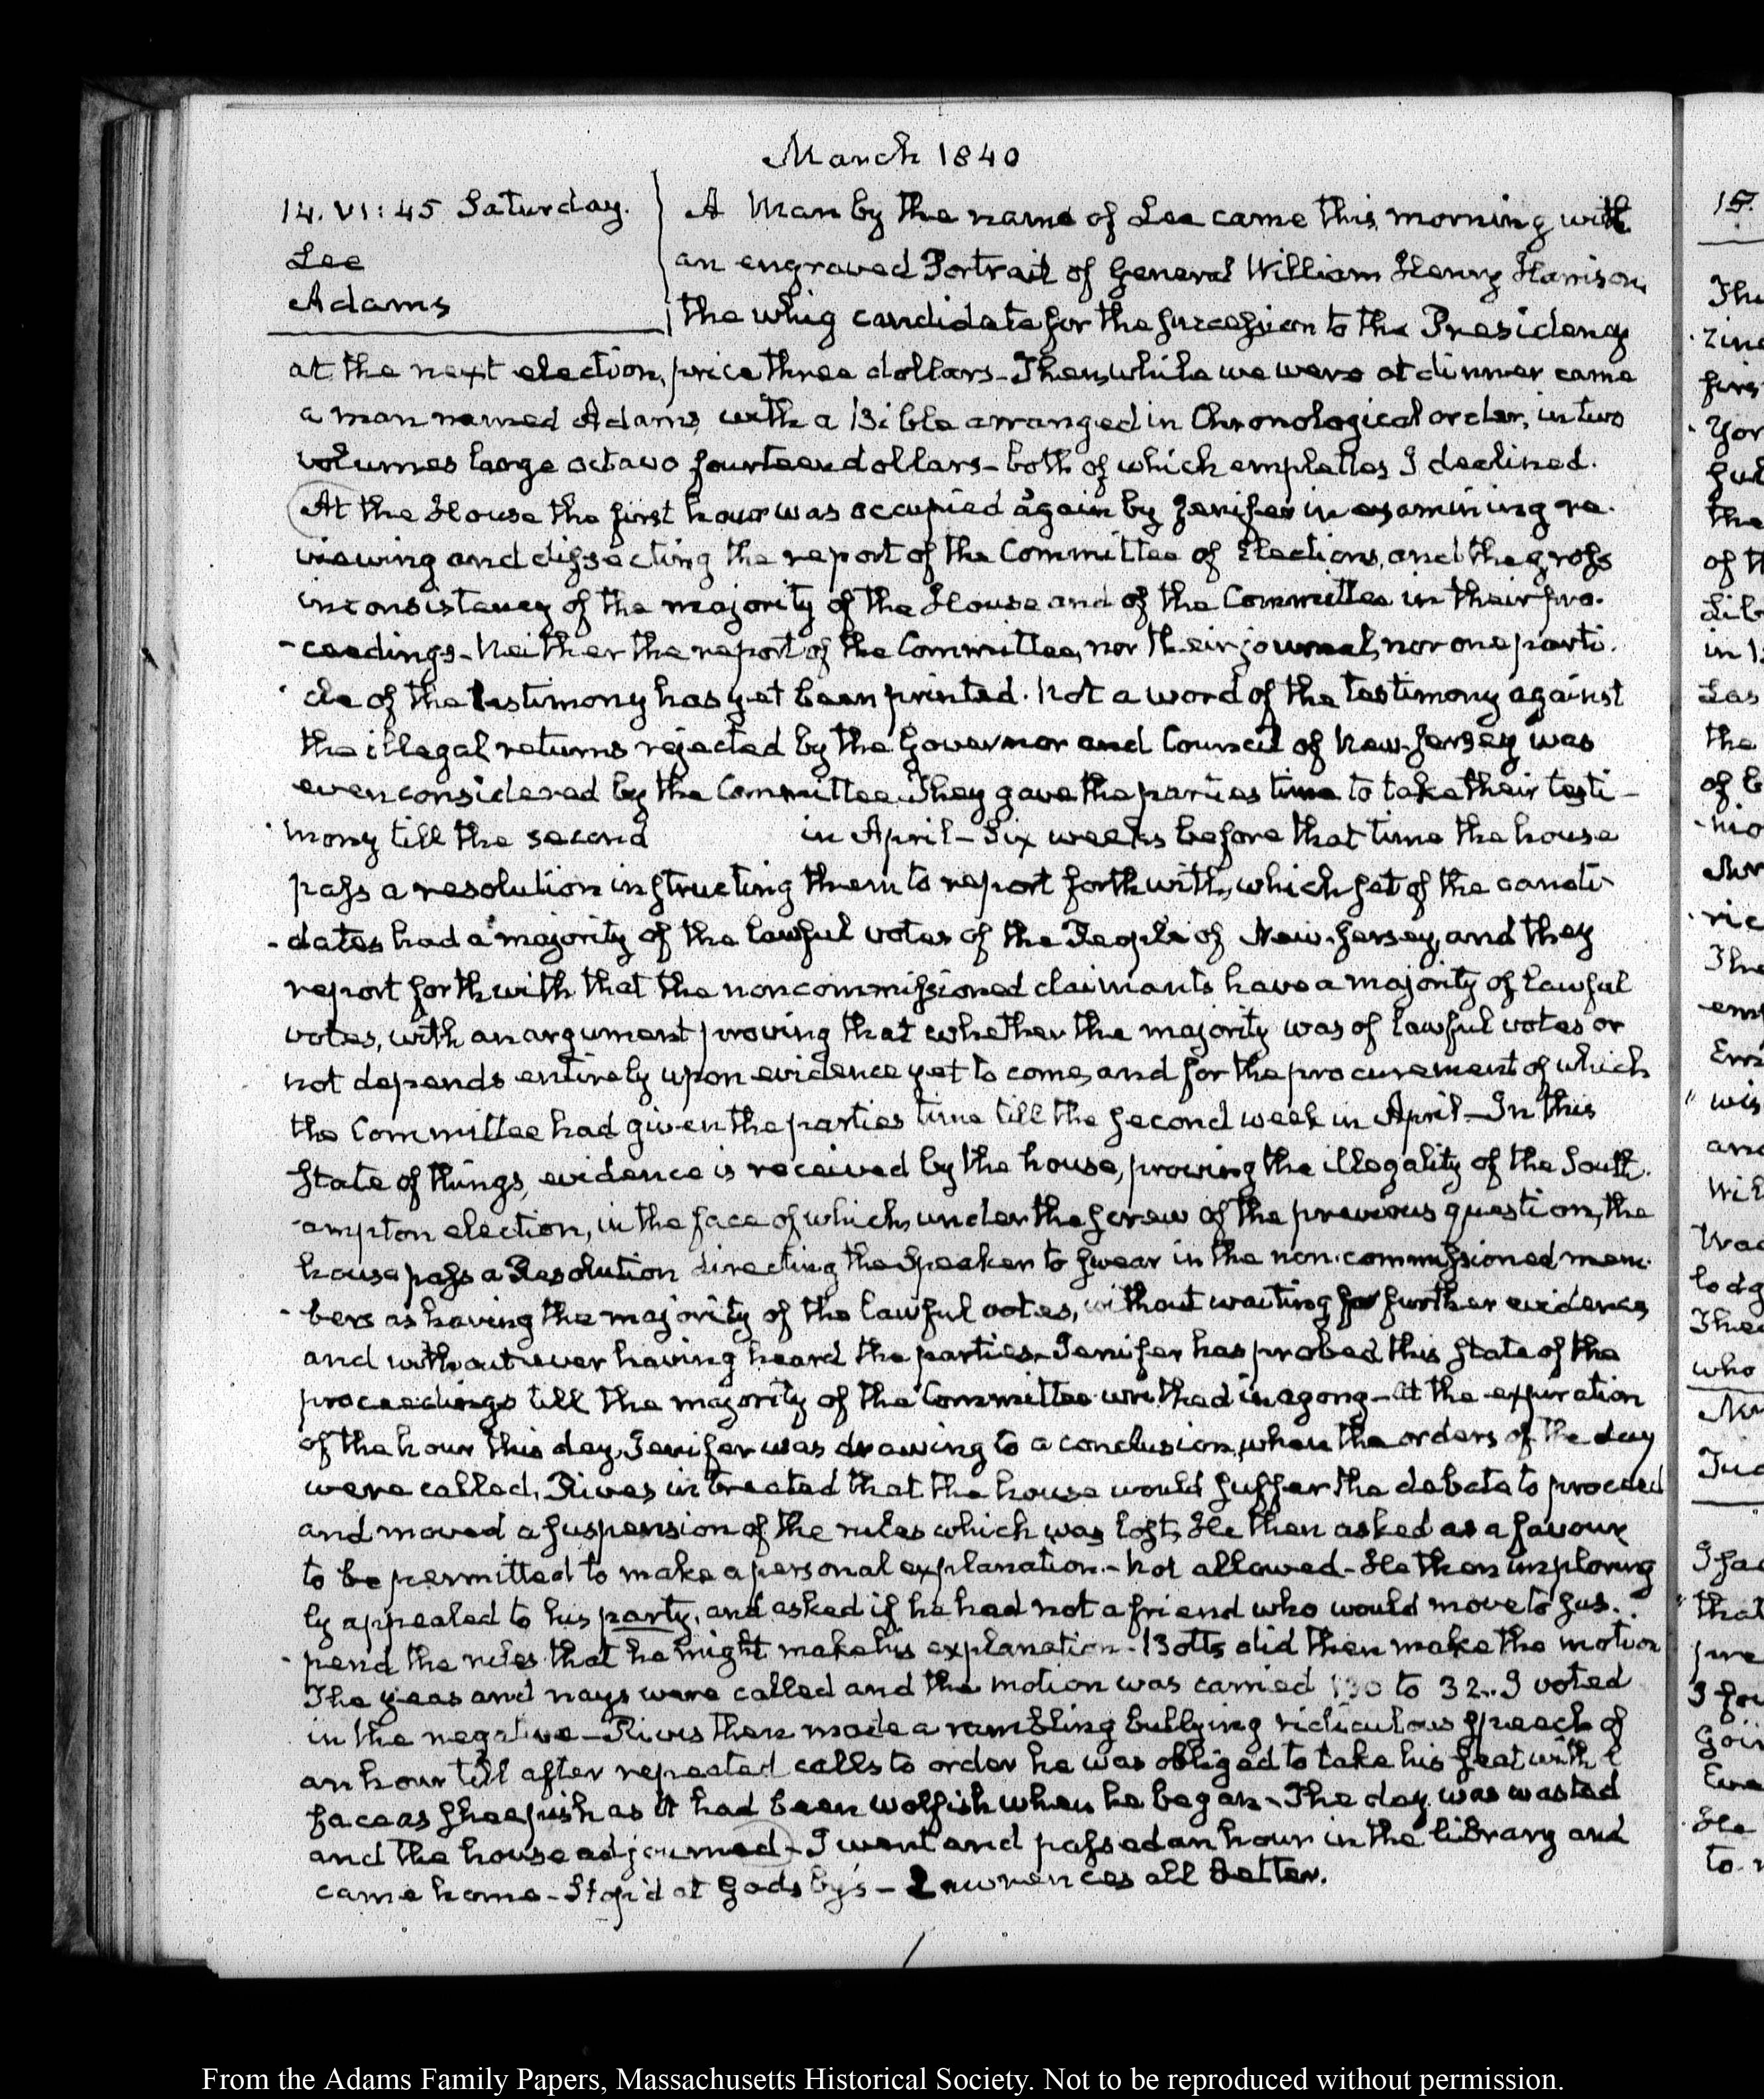 March 1840
14. VI: 45 Saturday.
Lee
Adams
A Man by the name of Lee came this morning with
an engraved Portrait of General William Henry Harrison,
the whig candidate for the succession to the Presidency
at the next election, price three dollars - Then, while we were at dinner came
a man named Adams, with a Bible arranged in Chronological order, in two
volumes large octavo fourteen dollars - both of which emplettes I declined.
At the House the first hour was occupied again by Jenifer in examining re-
viewing and dissecting the report of the Committee of Elections, and the gross
inconsistency of the majority of the House and of the Committee in their pro-
-ceedings - Neither the report of the Committee, nor their journal, nor one parti-
-cle of the testimony has yet been printed. Not a word of the testimony against
the illegal returns rejected by the Governor and Council of New-Jersey was
even considered by the Committee. They gave the parties time to take their testi-
-mony till the second in April - Six weeks before that time the house
pass a resolution instructing them to report forthwith, which set of the candi-
-dates had a majority of the lawful votes of the People of New-Jersey, and they
report forthwith that the noncommissioned claimants have a majority of lawful
votes, with an argument proving that whether the majority was of lawful votes or
not depends entirely upon evidence yet to come, and for the procurement of which
the Committee had given the parties time till the second week in April - In this
state of things, evidence is received by the house, proving the illegality of the South-
-ampton election, in the face of which, under the screw of the previous question, the
house pass a Resolution directing the Speaker to swear in the non-commissioned mem-
-bers as having the majority of the lawful votes, without waiting for further evidence,
and without ever having heard the parties - Jenifer has probed this state of the
proceedings till the majority of the Committee writhed in agony - At the expiration
of the hour this day, Jenifer was drawing to a conclusion, when the orders of the day
were called, Rives intreated that the house would suffer the debate to proceed
and moved a suspension of the rules which was lost, He then asked as a favour
to be permitted to make a personal explanation - not allowed - He then imploring
ly appealed to his party, and asked if he had not a friend who would move to sus-
-pend the rules that he might make his explanation - Botts did then make the motion
The yeas and nays were called and the motion was carried 130 to 32. I voted
in the negative - Rives then made a rambling bullying ridiculous speech of
an hour till after repeated calls to order he was obliged to take his seat with a
face as sheepish as it had been wolfish when he began - The day was wasted
and the house adjourned - I went and passed an hour in the library and
came home - Stop'd at Gadsby's - Lawrences all better.
15.
From the Adams Family Papers, Massachusetts Historical Society. Not to be reproduced without permission.